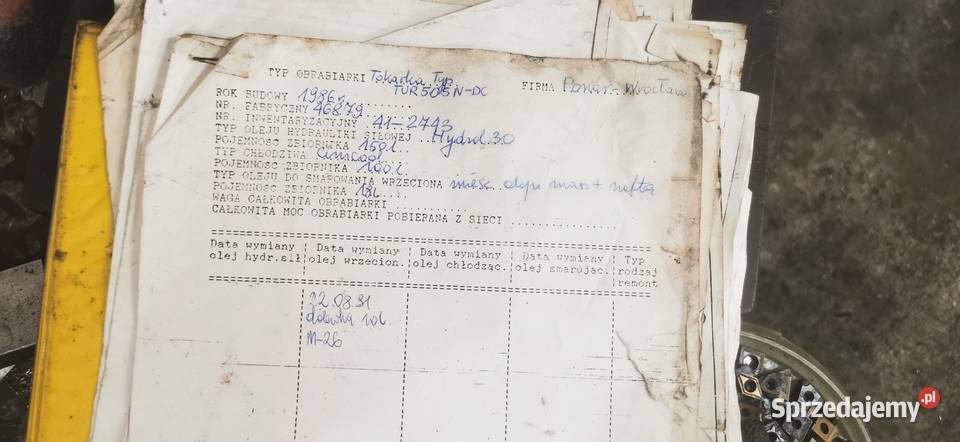 TYP OBRABIARKI Tokarka Typ TUR 505N-DC FIRMA Ponar - Wrocław
ROK BUDOWY 1986r.........
NR. FABRYCZNY 46879
NR. INWENTARYZACYJNY ..41-2743
TYP OLEJU HYDRAULIKI SIŁOWEJ ..Hydrol.30
POJEMNOŚĆ ZBIORNIKA 150l.
TYP CHŁODZIWA
POJEMNOŚĆ ZBIORNIKA 100l.
TYP OLEJU DO SMAROWANIA WRZECIONA miesz. oleju masz + nafta
POJEMNOŚĆ ZBIORNIKA
WAGA CAŁKOWITA OBRABIARKI ............
CAŁKOWITA MOC OBRABIARKI POBIERANA Z SIECI ................
Data wymiany olej hydr.sił | Data wymiany olej wrzecion. | Data wymiany olej chłodząc. | Data wymiany olej smarując. | Typ rodzaj remont
22.08.91
dolewka 10l.
M-26
Sprzedajemy.pl